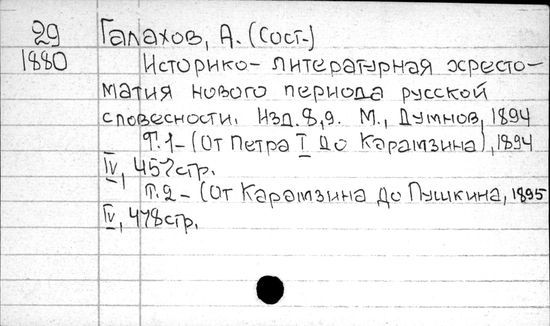 29 Галахов, А. (Сост.)
1880 Историко-литературная хресто-
матия нового периода русской
словесности. Изд. 8,9. М., Думнов, 1894
Т.1- (От Петра I до Карамзина), 1894
IV, 457стр.
Т.2- (От Карамзина до Пушкина, 1895
IV, 478стр.